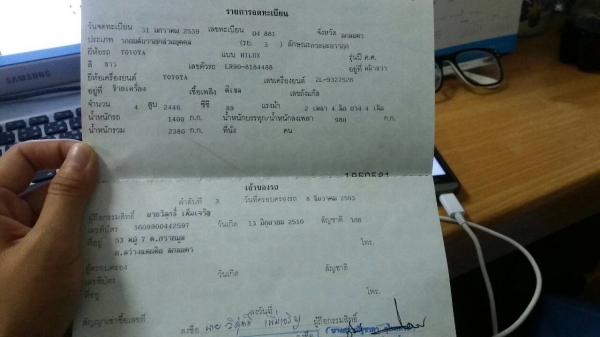 SAMSUNG
รายการจดทะเบียน
วันจดทะเบียน 31 มกราคม 2539 เลขทะเบียน บง 881 จังหวัด สกลนคร
ประเภท รถยนต์บรรทุกส่วนบุคคล (รย. 3 ) ลักษณะกระบะบรรทุก
ยี่ห้อรถ TOYOTA แบบ HILUX รุ่นปี ค.ศ.
สี ขาว เลขตัวรถ LR90-8184488 อยู่ที่
ยี่ห้อเครื่องยนต์ TOYOTA เลขเครื่องยนต์ 2L-9327528
อยู่ที่ เชื้อเพลิง ดีเซล เลขถังแก๊ส
จำนวน 4 สูบ 2446 ซีซี แรงม้า 2 เพลา 4 ล้อ ยาง 4 เส้น
น้ำหนักรถ 1400 ก.ก. น้ำหนักบรรทุก/น้ำหนักลงเพลา 980 ก.ก.
น้ำหนักรวม 2380 ก.ก. ที่นั่ง คน
เจ้าของรถ
ลำดับที่ 3 วันที่ครอบครองรถ 8 ธันวาคม
ผู้ถือกรรมสิทธิ์ นายวิสุทธิ์ เพิ่มเจริญ
เลขที่บัตร 3609900442597 วันเกิด 13 มิถุนายน 2510 สัญชาติ ไทย
ที่อยู่ 53 หมู่ 7 ต. โทร.
อ.สว่างแดนดิน สกลนคร
ผู้ครอบครอง วันเกิด สัญชาติ
เลขที่บัตร
ที่อยู่ โทร.
สัญญาเช่าซื้อเลขที่ ลงวันที่
ลงชื่อ นาย วิสุทธิ์ เพิ่มเจริญ ผู้ถือกรรมสิทธิ์